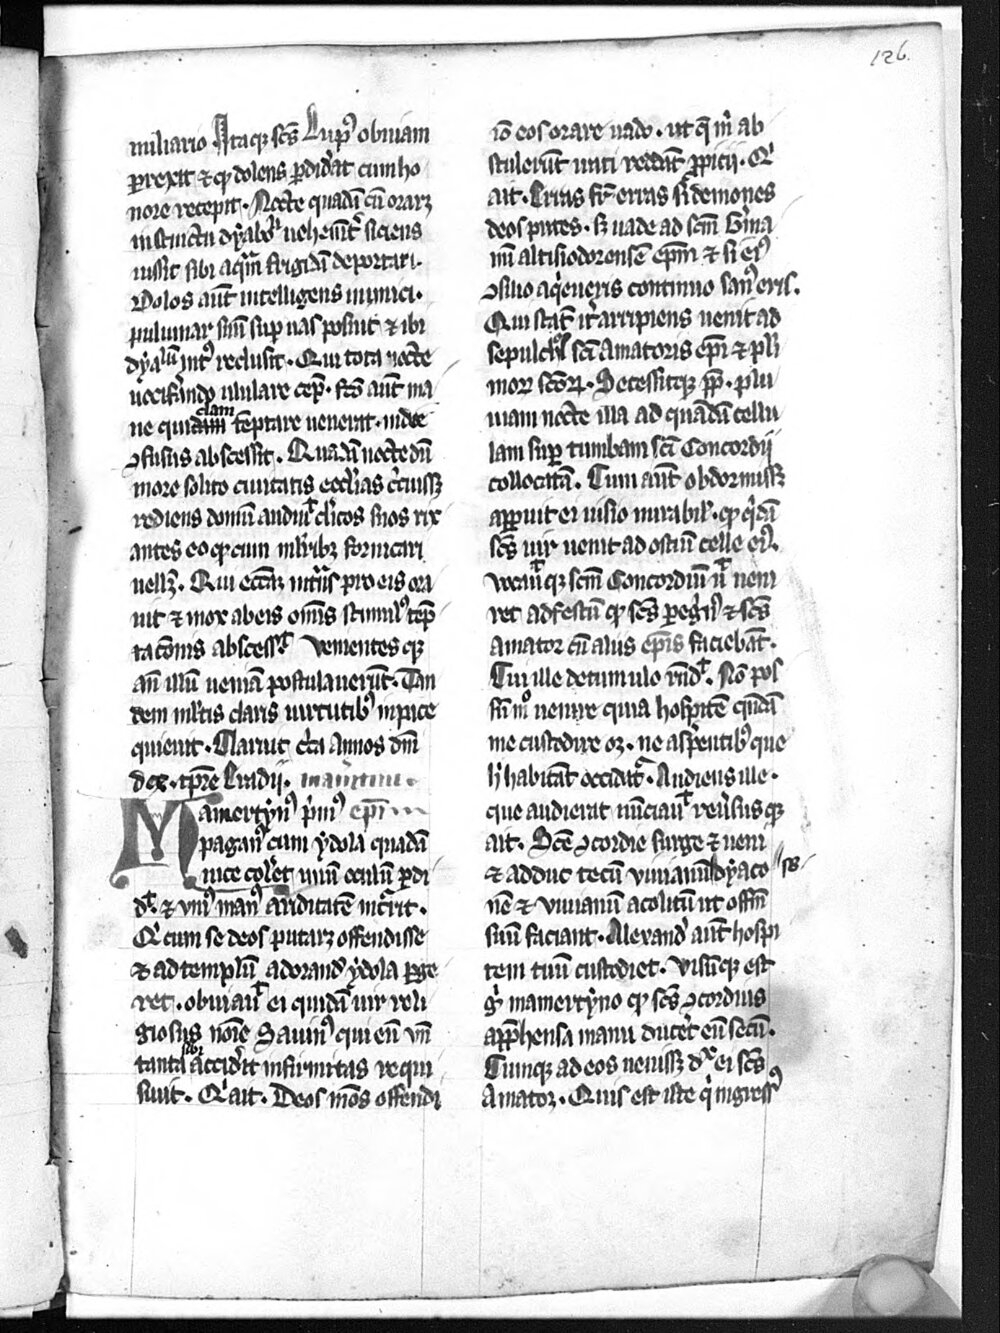 126.
miliario Itaq; scs̄ Lupꝰ obuiam
ꝑrexit ⁊ qꝫ dolens ꝑdidat cum ho
nore recepit. Nocte quadā cū oraret
instinctu dyaboli uehement̾ siciens
iussit sibi aquā frigidā deportari.
Dolos aūt intelligens inimici.
puluinar suū suꝑ uas posuit ⁊ ibi
dyalū intꝰ reclusit. Qui tota nocte
uociferando ululare cepit. scō aūt ma
ne qui clam tēptare uenerat. inde
ꝯfusus abscessit. Quadā nocte dū
more solito ciuitatis ecclias circuiss;
rediens domū audiuit clicos suos rix
antes eo qꝫ cum mlieribꝫ fornicari
uellꝫ. Qui eccāꝫ intrās pro eis ora
uit ⁊ mox ab eis om̄is stimulꝰ tēp
tacōnis abscessit Venientes qꝫ
an̄ illū ueniā postulauerūt. Tan
dem mltis claris uirtutibꝰ in pace
quieuit. Claruit circa Annos dn̄i
dcx. tꝑre Lividij.
Mamertynꝰ primꝰ epī
paganꝰ cum ydola quadā
uice colet unū oculū ꝑdi
dit ⁊ vniꝰ manꝰ ariditatē incurrit.
Qͥ cum se deos putarꝫ offendisse
⁊ ad templū adorandꝰ ydola ꝑge
ret. obuiauit ei quidā uir reli
giosus noīe Sauinꝰ qui eū vn̄
tanta sibi accidit infirmitas requi
siuit. Qͥ ait. Deos meos offendi
iō eos orare uado. ut q̄ m̄ ab
stulerūt mici reddāt ꝓpicij. Qͥ
ait. Erras fr̄ erras si demones
deos putes. sꝫ uade ad scm̄ Germa
nū altisiodorensē epm̄ ⁊ si eiꝰ
ꝯsilio aq̄eueris continuo sanꝰ eris.
Qui statī it̾ arripiens uenit ad
sepulchrū sci Amatoris epī ⁊ pli
morꝫ scōꝝ. Secessitqꝫ ꝓpt̾ plu
uiam nocte illa ad quādā cellu
lam suꝑ tumbam scī Concordij
collocatā. Cum aūt obdormissꝫ
apparuit ei uisio mirabilꝭ. qꝫ qͥdā
scs̄ uir uenit ad ostiū celle eiꝰ.
vocauit qꝫ scm̄ Concordiū ut ueni
ret ad festū qꝫ scs̄ ꝑegrinꝰ ⁊ scs̄
Amator cū aliis ep̄is faciebāt.
Cui ille de tumulo rn̄dit. Nō pos
sū mͦ uenire quia hospitē quēdā
me custodire oꝫ. ne a sꝑentibꝰ que
hͥ habitāt occidat̾. Audiens ille.
que audierat nūciauit reu̾susqꝫ
ait. Sce ꝯcordie surge ⁊ ueni
⁊ adduc tecū viuianū dyaco
nē ⁊ viuianū acolitū ut offm̄
suū faciant. Alexandꝰ aūt hospi
tem tuū custodiet. Visūqꝫ est
gͦ mamertyno qꝫ scs̄ ꝯcordius
apꝑhensa manu duceret eū secū.
Cumqꝫ ad eos uenissꝫ dixit ei scs̄
Amator. Quis est iste qͥ ingressꝰ